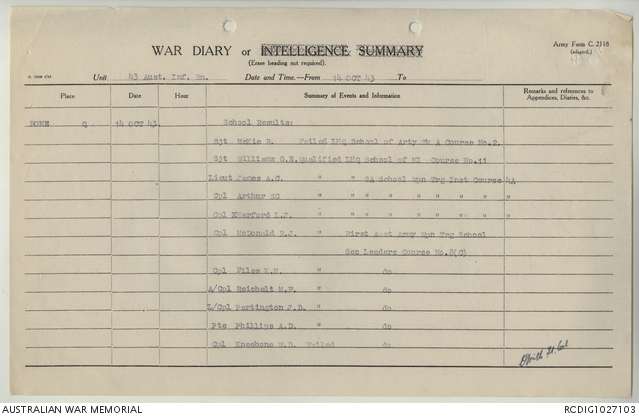 WAR DIARY or INTELLIGENCE SUMMARY
(Erase heading not required).
Army Form C. 2118
(adapted.)
Unit 43 Aust. Inf. Bn. Date and Time.—From 14 OCT 43 To
Place Date Hour Summary of Events and Information Remarks and references to Appendices, Diaries, &c.
14 OCT 43 School Results:
Sjt McKie R. Failed LHQ School of Arty Wk A Course No.2.
Sjt Williams G.E. Qualified LHQ School of MI Course No.11
Lieut James A.C. " " SA School Wpn Trg Inst Course 4A
Cpl Arthur " " " " " " " "
Cpl L.J. " " " " " " " "
Cpl McDonald R.J. " First Aust Army Wpn Trg School
Sec Leaders Course No.8(C)
Cpl Files " do
A/Cpl Reichelt M.F. " do
L/Cpl Partington J.D. " do
Pte Phillips A.D. " do
Cpl Kneebone Failed do
AUSTRALIAN WAR MEMORIAL
RCDIG1027103